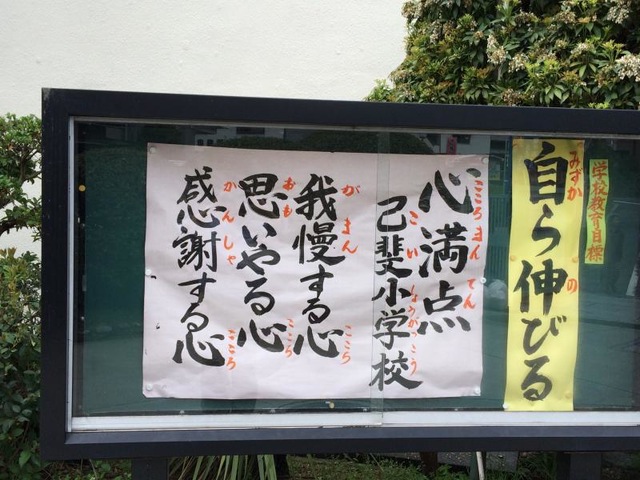 学校教育目標
自ら伸びる
みずか の
心満点
こころまんてん
己斐小学校
こいしょうがっこう
我慢する心
がまん こころ
思いやる心
おも こころ
感謝する心
かんしゃ こころ